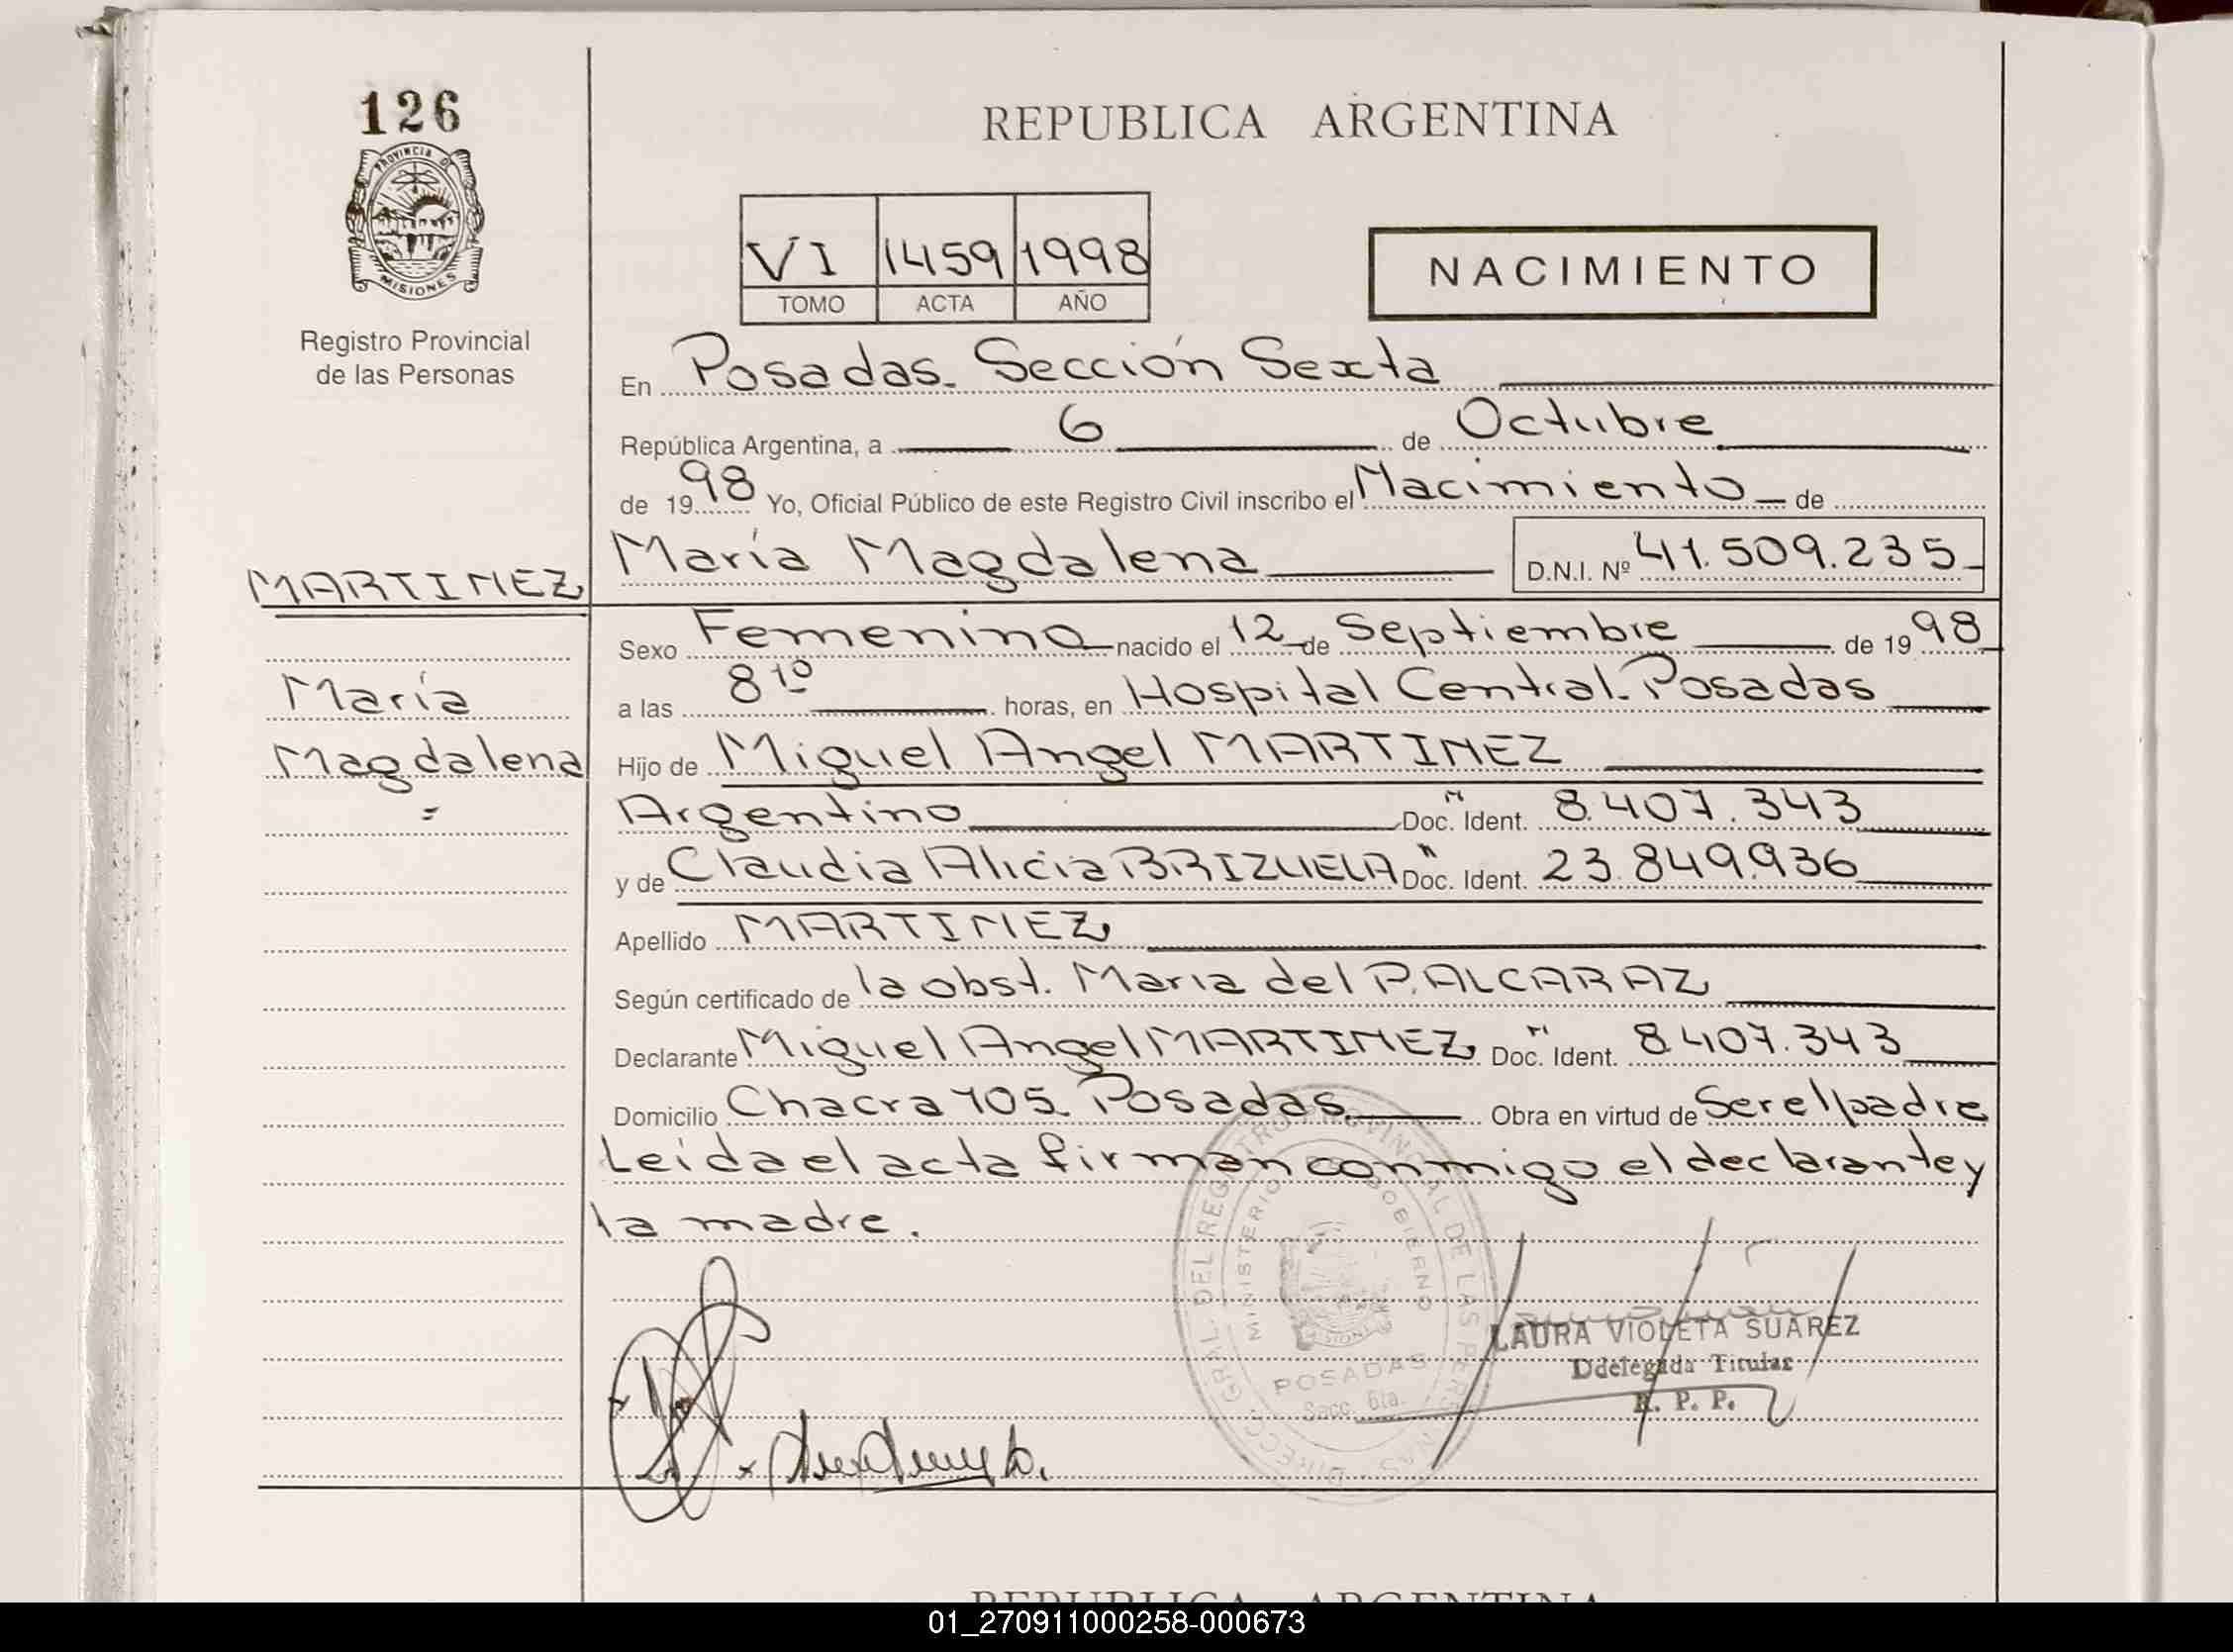 126
PROVINCIA D
MISIONES
Registro Provincial
de las Personas
REPUBLICA ARGENTINA
VI 1459 1998
TOMO ACTA AÑO
NACIMIENTO
En Posadas. Sección Sexta
República Argentina, a 6 de Octubre
de 1998 Yo, Oficial Público de este Registro Civil inscribo el Nacimiento de
María Magdalena D.N.I. Nº 41.509.235
MARTINEZ
Sexo Femenino nacido el 12 de Septiembre de 1998
María
a las 8 10 horas, en Hospital Central. Posadas
Magdalena
Hijo de Miguel Angel MARTINEZ
Argentino Doc. Ident. 8.407.343
y de Claudia Alicia BRIZUELA Doc. Ident. 23.849.936
Apellido MARTINEZ
Según certificado de la obst. Maria del P. ALCARAZ
Declarante Miguel Angel MARTINEZ Doc. Ident. 8.407.343
Domicilio Chacra 105. Posadas. Obra en virtud de Ser el padre
Leída el acta firman conmigo el declarante y
la madre.
DIRECC. GRAL. DEL REGISTRO PROVINCIAL DE LAS PERSONAS
MINISTERIO DE GOBIERNO
MISIONES
POSADAS
Secc. 6ta.
LAURA VIOLETA SUAREZ
Ddelegada Titular
R. P. P.
REPUBLICA ARGENTINA
01_270911000258-000673